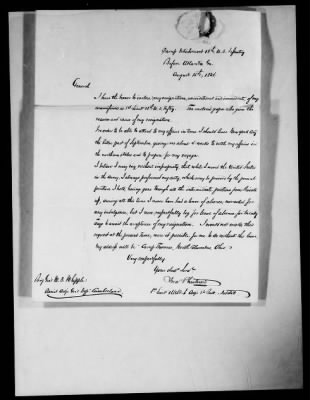 Camp Detachment 18th U.S. Infantry
Before Atlanta Ga.
August 10th, 1864
General
I have the honor to enclose, my resignation, unconditional and immediate, of my
commission as 1st Lieut 18th U.S. Infty. The enclosed papers also give the
reasons and cause of my resignation.
In order to be able to attend to my affairs in time I should leave New York city
the latter part of September, giving me about 4 weeks to settle my affairs in
the northern states and to prepare for my voyage.
I believe I may say without impropriety, that while I served the United States
in the Army, I always performed my duty, which may be proven by the present
position I hold, having gone through all the intermediate positions from Private
up, during all the time I never have had a leave of absence, nor asked for
any indulgence, but I now respectfully beg for leave of absence for twenty
days to await the acceptance of my resignation. I would not make this
request at the present time, were it possible for me to do without the leave
My address will be Camp Thomas, North Columbus Ohio.
Very respectfully
Your Obdt Servt
1st Lieut 18th U.S. Infty
Brig Genl W. D. Whipple
Asst Adjt Genl Dept Cumberland